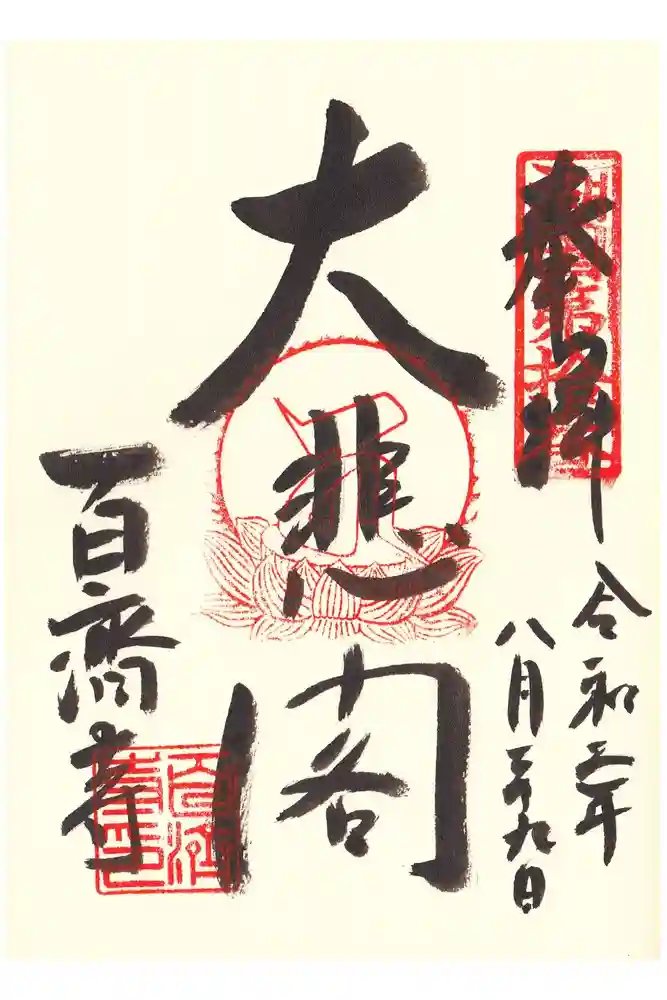 奉拝
令和年
八月二十九日
大悲閣
百濟寺
百濟
寺印